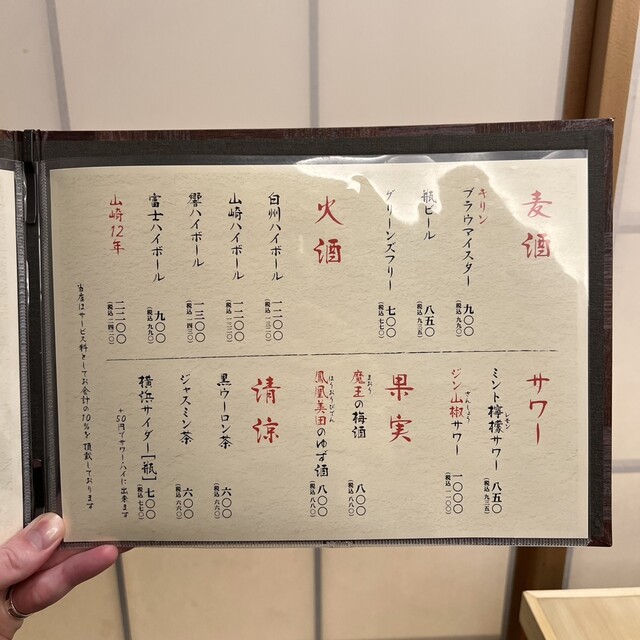 麦酒
キリン
ブラウマイスター 九〇〇
(税込 九九〇)
瓶ビール 八五〇
(税込 九三五)
グリーンズフリー 七〇〇
(税込 七七〇)
火酒
白州ハイボール 一二〇〇
(税込 一三二〇)
山崎ハイボール 一二〇〇
(税込 一三二〇)
響ハイボール 一三〇〇
(税込 一四三〇)
富士ハイボール 九〇〇
(税込 九九〇)
山崎12年 二二〇〇
(税込 二四二〇)
サワー
ミント檸檬サワー 八五〇
レモン
(税込 九三五)
ジン山椒サワー 一〇〇〇
さんしょう
(税込 一一〇〇)
果実
魔王の梅酒 八〇〇
まおう
(税込 八八〇)
鳳凰美田のゆず酒 八〇〇
ほうおうびでん
(税込 八八〇)
清涼
黒ウーロン茶 六〇〇
(税込 六六〇)
ジャスミン茶 六〇〇
(税込 六六〇)
横浜サイダー[瓶] 七〇〇
(税込 七七〇)
+50円でサワー・ハイに出来ます
当店はサービス料としてお会計の10%を頂戴しております